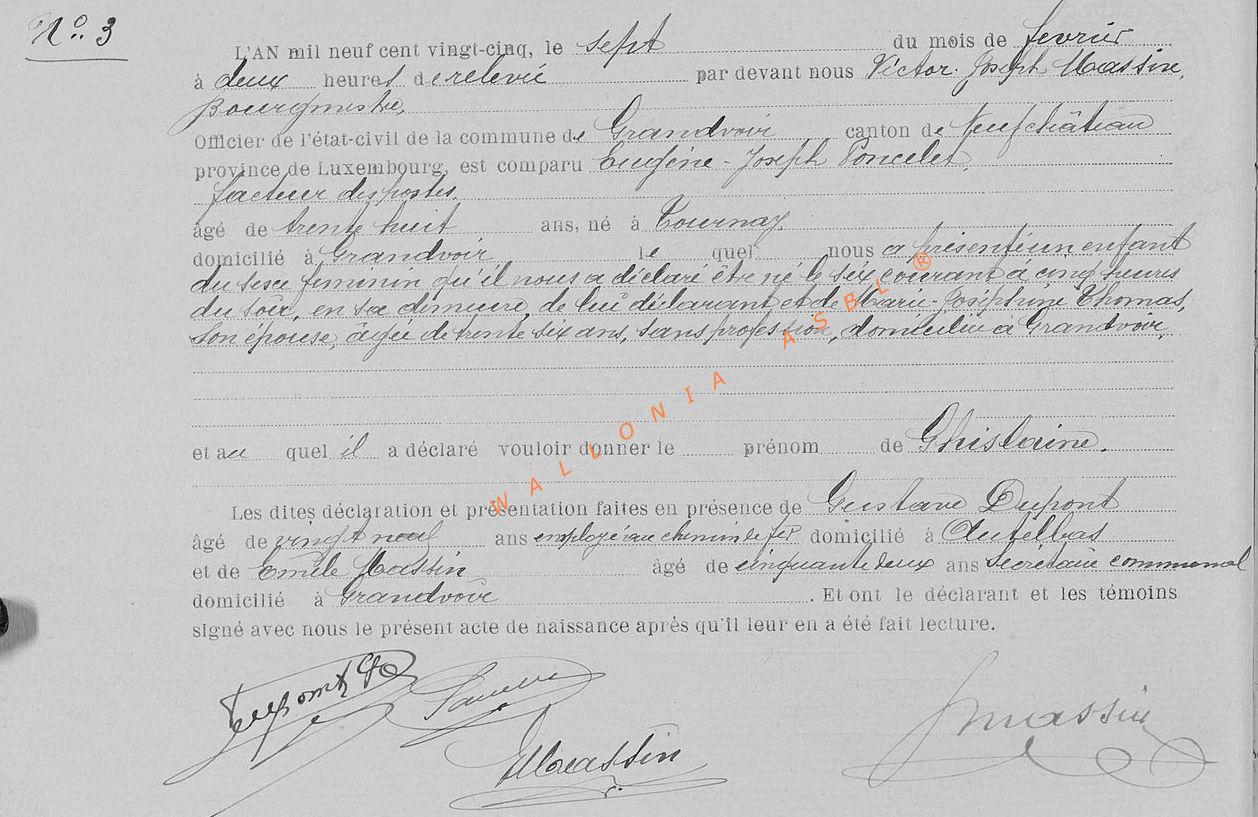 Nº. 3
L'AN mil neuf cent vingt-cinq, le sept du mois de fevrier
à deux heures de relevée par devant nous Victor-Joseph Massin,
Bourgmestre,
Officier de l'état-civil de la commune de Grandvoir canton de Neufchâteau
province de Luxembourg, est comparu Eugène-Joseph Poncelet,
facteur des postes,
âgé de trente huit ans, né à Tournay
domicilié à Grandvoir le quel nous a présenté un enfant
du sexe féminin qu'il nous a déclaré être né le six courant à cinq heures
du soir, en sa demeure, de lui déclarant et de Marie-Joséphine Thomas,
son épouse, âgée de trente six ans, sans profession, domiciliée à Grandvoir,
et au quel il a déclaré vouloir donner le prénom de Ghislaine.
Les dites déclaration et présentation faites en présence de Gustave Dupont
âgé de vingt neuf ans employé au chemin de fer domicilié à Autelbas
et de Emile Massin âgé de cinquante deux ans Secrétaire communal
domicilié à Grandvoir. Et ont le déclarant et les témoins
signé avec nous le présent acte de naissance après qu'il leur en a été fait lecture.
Dupont G
Massin
Massin
WALLONIA ASBL ®